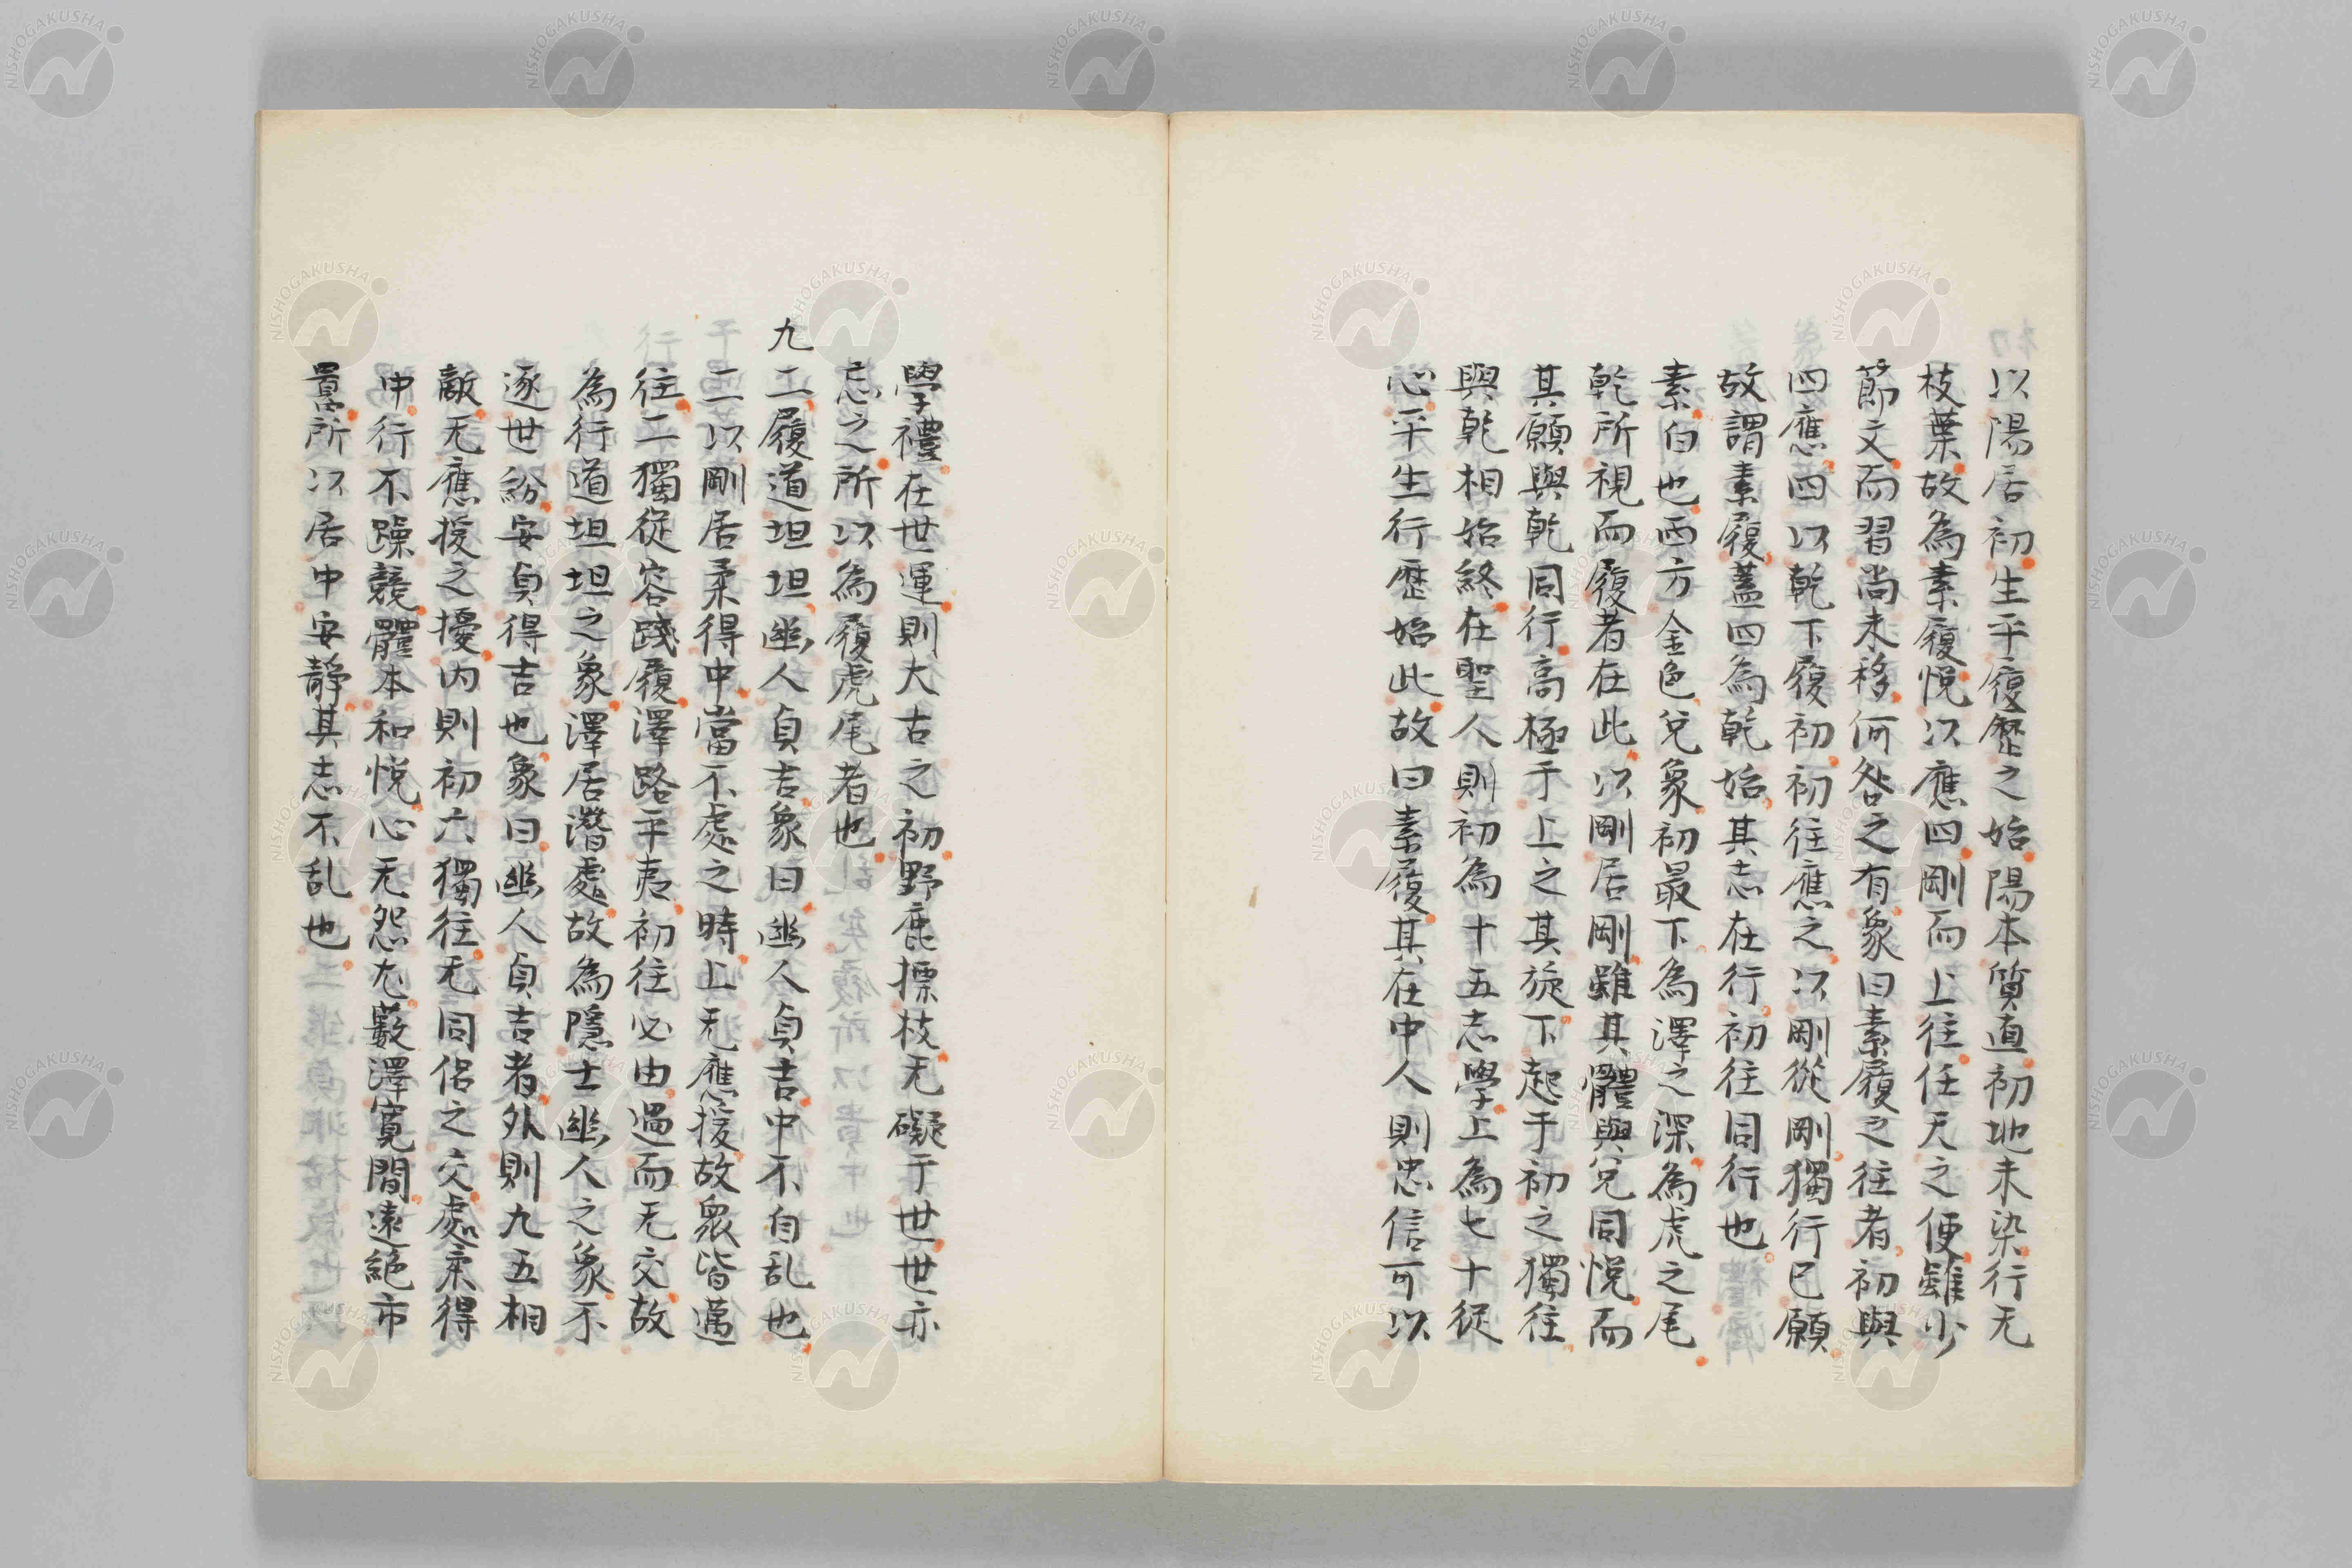 以陽居初生平履歷之始陽本質直初地未染行无
枝葉故為素履悅以應四剛而上往任天之便雖少
節文而習尚未移何咎之有象曰素履之往者初與
四應四以乾下履初初往應之以剛從剛獨行已願
故謂素履蓋四為乾始其志在行初往同行也
素白也西方金色兌象初最下為澤之深為虎之尾
乾所視而履者在此以剛居剛雖其體與兌同悅而
其願與乾同行高極于上之其旋下起于初之獨往
與乾相始終在聖人則初為十五志學上為七十從
心平生行歷始此故曰素履其在中人則忠信可以
學禮在世運則大古之初野鹿摽枝无礙于世世亦
忘之所以為履虎尾者也
九二履道坦坦幽人貞吉象曰幽人貞吉中不自乱也
二以剛居柔得中當不處之時上无應援故衆皆邁
往二獨從容踐履澤路平夷初往必由過而无交故
為行道坦坦之象澤居潛處故為隱士幽人之象不
逐世紛安貞得吉也象曰幽人貞吉者外則九五相
敵无應援之擾内則初六獨往无同侶之交處柔得
中行不躁競體本和悅心无怨尤藪澤寬閒遠絕市
囂所以居中安靜其志不乱也
NISHOGAKUSHA